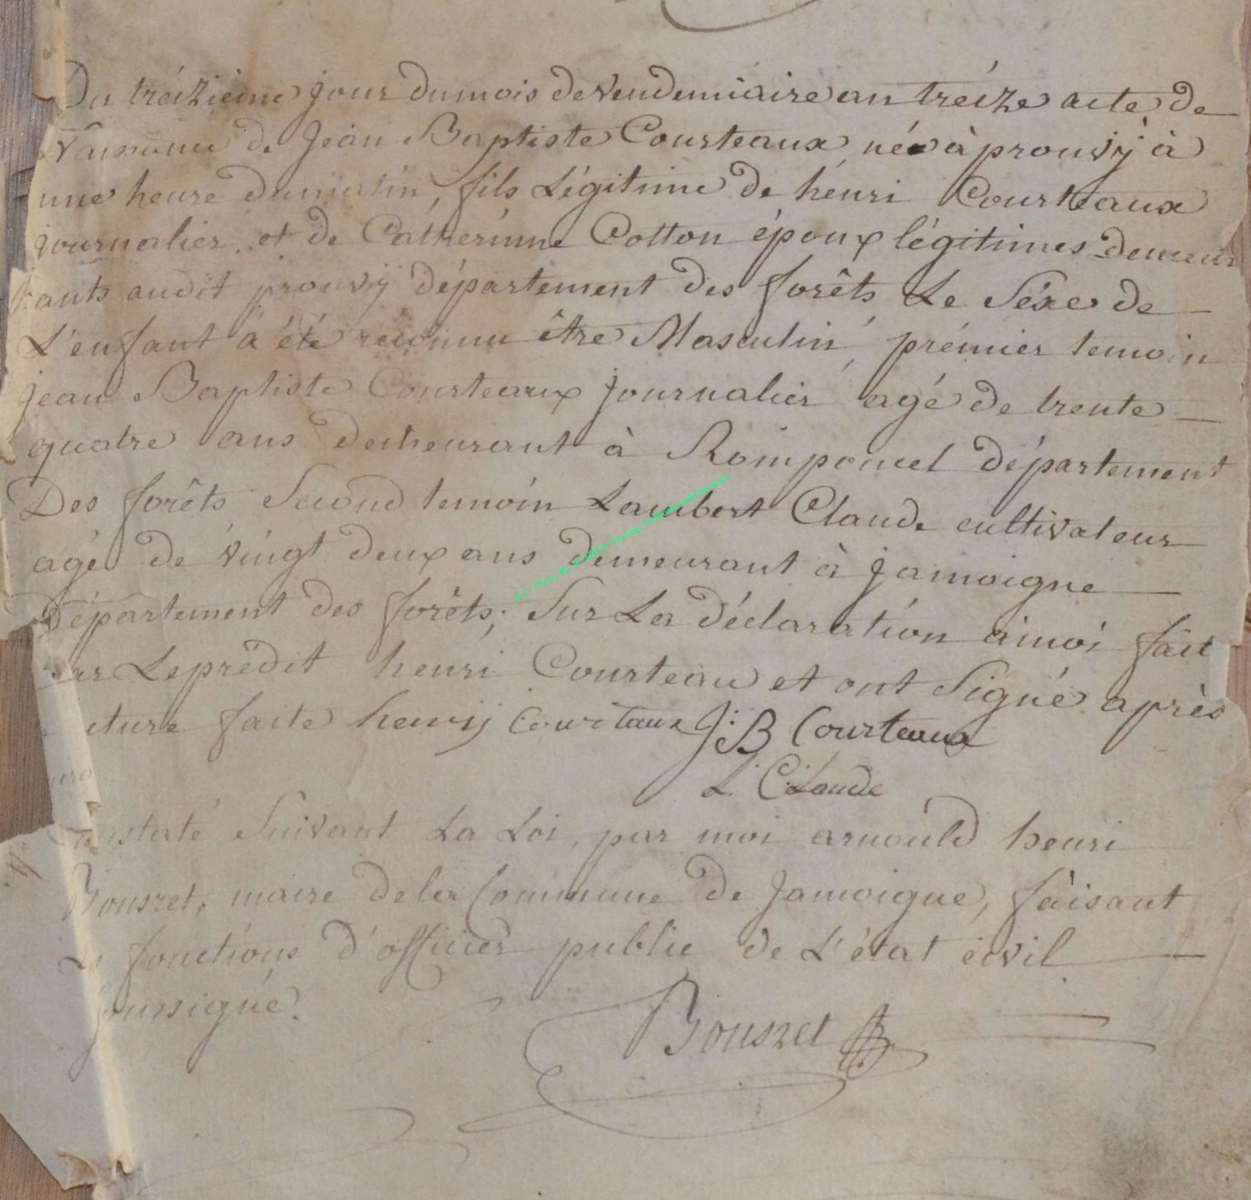 Du tréizieme jour du mois de vendemiaire an tréize acte de
Naissance de Jean Baptiste Courteaux né à prouvÿ à
une heure du matin, fils Légitime de hénri Courteaux
journalier, et de Cathérinne Cotton époux légitimes demeu
rants audit prouvÿ département des forêts Le Séxe de
L'enfant à été réconnu être Masculin, prémier temoin
jean Baptiste Courteaux journalier agé de trente
quatre ans demeurant à Romponcel département
Des forêts Second temoin Lambert Claude cultivateur
agé de vingt deux ans demeurant à jamoigne
Département des forêts; Sur La déclaration à moi fait
par Leprédit henri Courteau et ont Signé après
cture faite henrij Courtaux J: B Courteaux
L. Claude
constaté Suivant La Loi, par moi arnould henri
Bousret, maire de la Commune de Jamoigne, faisant
fonctions d'officier public de L'état civil
soussigné.
Bousret